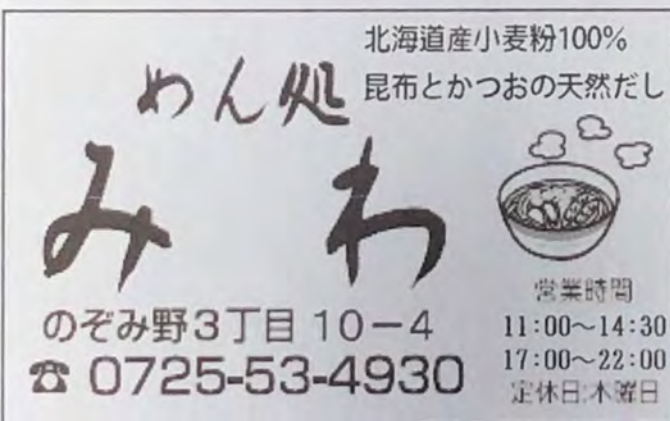 北海道産小麦粉100%
昆布とかつおの天然だし
めん処
みわ
のぞみ野3丁目 10-4
☎ 0725-53-4930
営業時間
11:00〜14:30
17:00〜22:00
定休日:木曜日